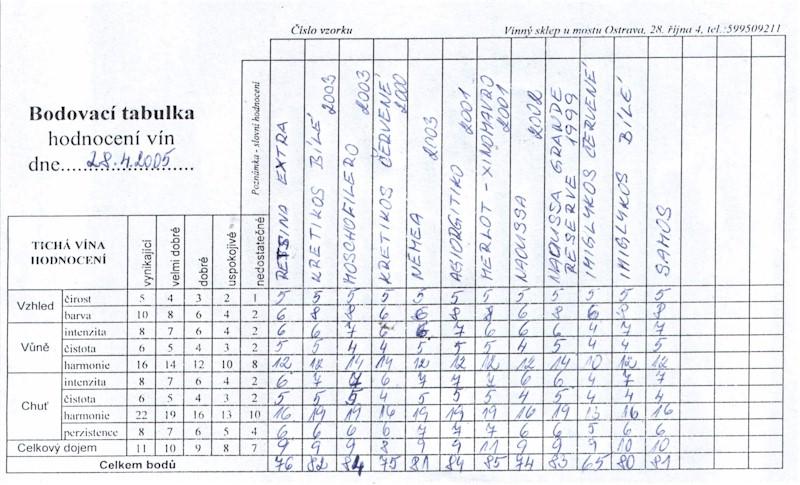 Číslo vzorku
Vinný sklep u mostu Ostrava, 28. října 4, tel.:599509211
Bodovací tabulka
hodnocení vín
dne.....28.4.2005.....
Poznámka - slovní hodnocení
RETSINA EXTRA
KRETIKOS BÍLÉ 2003
MOSCHOFILERO 2003
KRETIKOS ČERVENÉ 2000
NEMEA 2003
AGIORGITIKO 2001
MERLOT - XINOMAVRO 2001
NAOUSSA 2002
NAOUSSA GRANDE RESERVE 1999
IMIGLYKOS ČERVENÉ
IMIGLYKOS BÍLÉ
SAMOS
TICHÁ VÍNA HODNOCENÍ
vynikající
velmi dobré
dobré
uspokojivé
nedostatečné
Vzhled
čirost 5 4 3 2 1 5 5 5 5 5 5 5 5 5 5 5 5
barva 10 8 6 4 2 6 8 8 6 6 8 8 6 8 6 8 8
Vůně
intenzita 8 7 6 4 2 6 6 7 6 6 7 6 6 6 4 7 7
čistota 6 5 4 3 2 5 5 4 4 5 5 5 4 5 4 4 5
harmonie 16 14 12 10 8 12 12 14 14 12 12 12 12 14 10 12 12
Chuť
intenzita 8 7 6 4 2 6 7 7 6 7 7 7 6 6 4 7 7
čistota 6 5 4 3 2 5 5 5 4 5 5 5 4 5 4 4 4
harmonie 22 19 16 13 10 16 19 19 16 19 19 19 16 19 13 16 16
perzistence 8 7 6 5 4 6 6 6 6 7 7 7 6 6 5 6 6
Celkový dojem 11 10 9 8 7 9 9 9 8 9 9 11 9 9 9 10 10
Celkem bodů 76 82 84 75 81 84 85 74 83 65 80 81